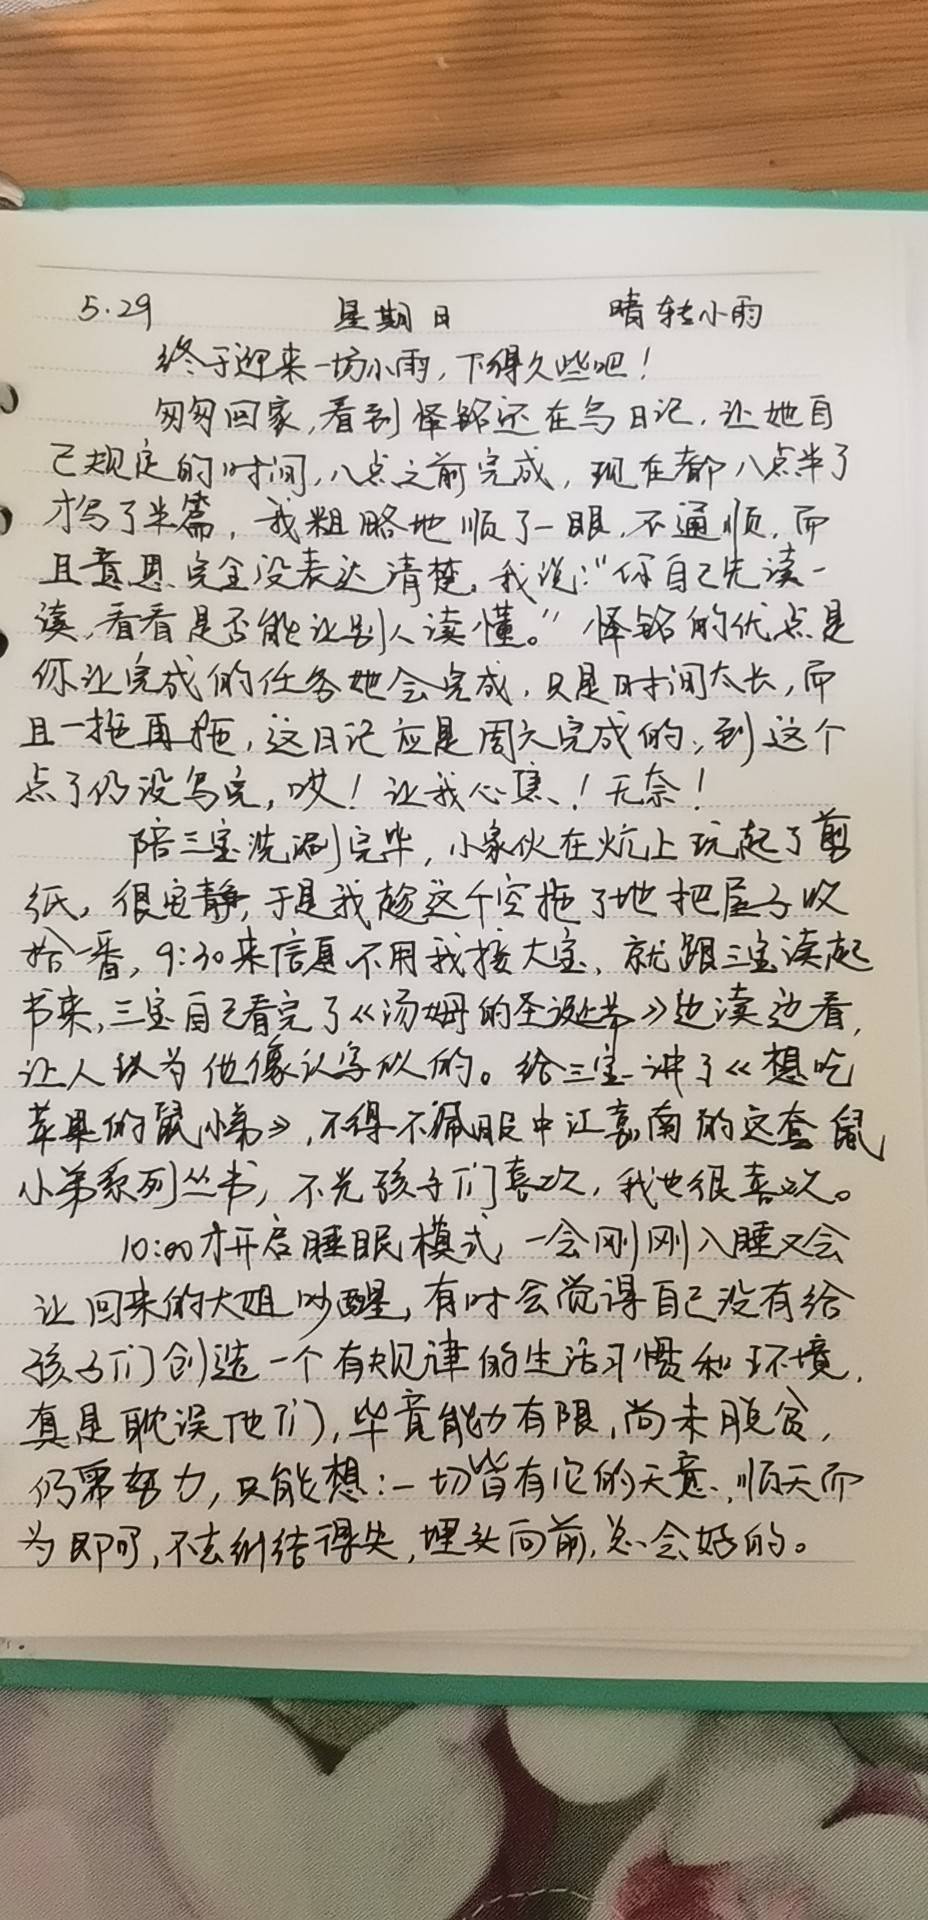 5.29 星期日 晴转小雨
终于迎来一场小雨，下得久些吧！
匆匆回家，看到怿铭还在写日记，让她自
己规定的时间，八点之前完成，现在都八点半了
才写了半篇，我粗略地顺了一眼，不通顺，而
且意思完全没表达清楚，我说："你自己先读一
读，看看是否能让别人读懂。"怿铭的优点是
你让完成的任务她会完成，只是时间太长，而
且一拖再拖，这日记应是周六完成的，到这个
点了仍没写完，哎！让我心焦！无奈！
陪三宝洗涮完毕，小家伙在炕上玩起了剪
纸，很安静，于是我趁这个空拖了地把屋子收
拾一番，9:30来信息不用我接大宝，就跟三宝读起
书来，三宝自己看完了《汤姆的圣诞节》边读边看，
让人认为他像认字似的。给三宝讲了《想吃
苹果的鼠小弟》，不得不佩服中江嘉南的这套鼠
小弟系列丛书，不光孩子们喜欢，我也很喜欢。
10:00才开启睡眠模式，一会刚刚入睡又会
让回来的大姐吵醒，有时会觉得自己没有给
孩子们创造一个有规律的生活习惯和环境，
真是耽误他们，毕竟能力有限，尚未脱贫，
仍需努力，只能想：一切皆有它的天意，顺天而
为即可，不去纠结得失，埋头向前，总会好的。